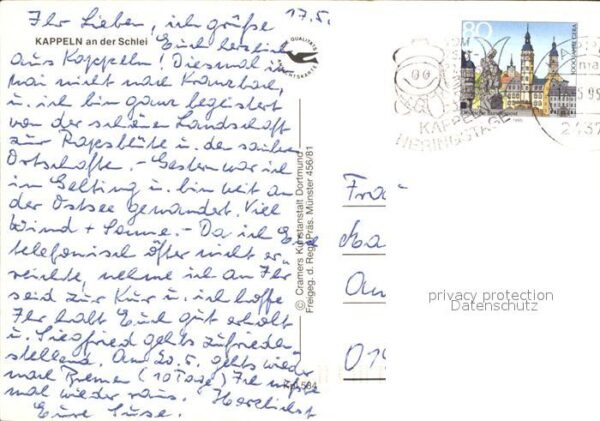 17.5.
Ihr Lieben, ich grüße
KAPPELN an der Schlei
Euch herzlich
aus Kappeln! Diesmal im
Mai nicht nach Kranzbach,
u. ich bin ganz begeistert
von der schönen Landschaft
zur Rapsblüte u. den saubern
Ortschaften. - Gestern war ich
in Gelting u. bin weit an
der Ostsee gewandert. Viel
Wind + Sonne. - Da ich Euch
telefonisch öfter nicht er-
reichte, nehme ich an Ihr
seid zur Kur u. ich hoffe
Ihr habt Euch gut erholt
u. Siegfried gehts zufrieden-
stellend. Am 20.5. gehts wieder
nach Bremen (10 Tage) Ich
mal wieder raus. Herzlichst
Eure Suse.
QUALITÄTS
© Cramers Kunstanstalt Dortmund
Freigeg. d. Reg. Präs. Münster 456/81
80
KAPPELN
HERINGSTAGE
Frau
Am
privacy protection
Datenschutz